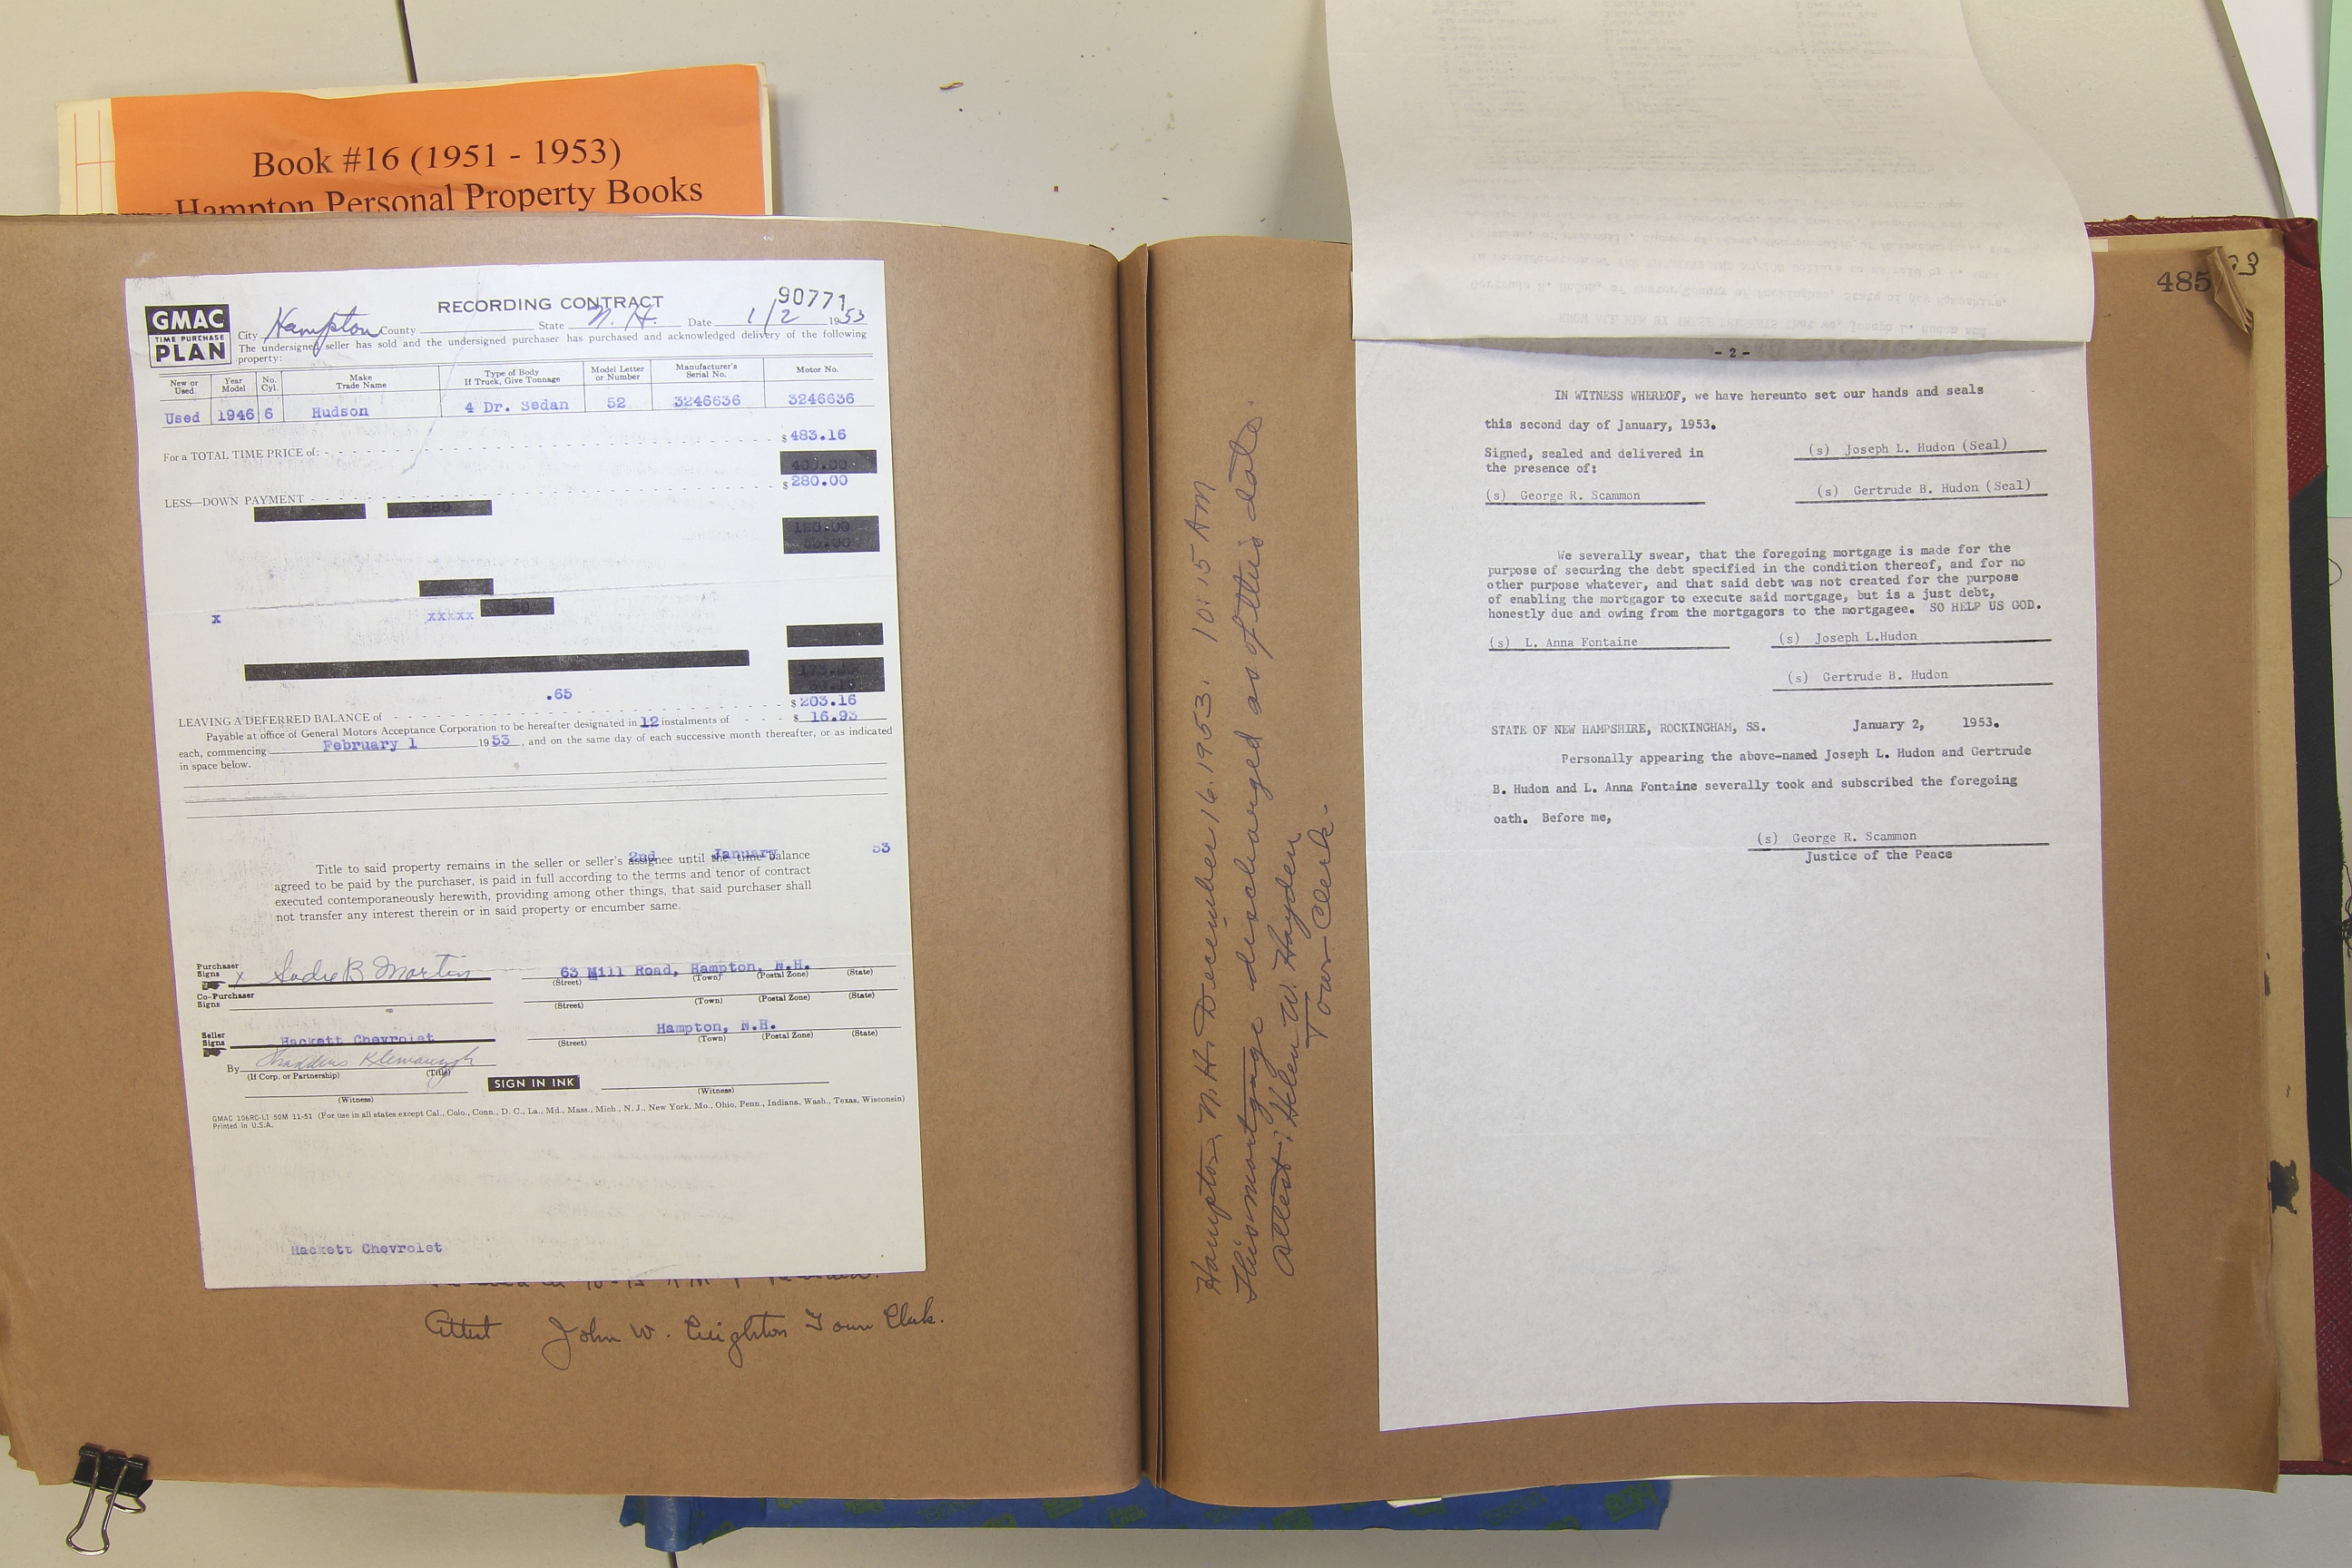 Book #16 (1951 - 1953)
Hampton Personal Property Books
GMAC
TIME PURCHASE
PLAN
RECORDING CONTRACT
90771
City Hampton County State N. H. Date 1/2 1953
The undersigned seller has sold and the undersigned purchaser has purchased and acknowledged delivery of the following
property:
New or Used Year Model No. Cyl. Make Trade Name Type of Body If Truck, Give Tonnage Model Letter or Number Manufacturer's Serial No. Motor No.
Used 1946 6 Hudson 4 Dr. Sedan 52 3246636 3246636
For a TOTAL TIME PRICE of: $ 483.16
LESS—DOWN PAYMENT $ 280.00
x xxxxx
.65
LEAVING A DEFERRED BALANCE of $ 203.16
Payable at office of General Motors Acceptance Corporation to be hereafter designated in 12 instalments of $ 16.93
each, commencing February 1 1953, and on the same day of each successive month thereafter, or as indicated
in space below.
2nd January 53
Title to said property remains in the seller or seller's assignee until the time balance
agreed to be paid by the purchaser, is paid in full according to the terms and tenor of contract
executed contemporaneously herewith, providing among other things, that said purchaser shall
not transfer any interest therein or in said property or encumber same.
Purchaser Signs x Sadie B Martin 63 Mill Road, Hampton, N.H.
(Street) (Town) (Postal Zone) (State)
Co-Purchaser Signs
(Street) (Town) (Postal Zone) (State)
Seller Signs Hackett Chevrolet Hampton, N.H.
(Street) (Town) (Postal Zone) (State)
By Thaddeus
(If Corp. or Partnership) (Title)
SIGN IN INK
(Witness) (Witness)
GMAC 106RC-LT 50M 11-51 (For use in all states except Cal., Colo., Conn., D. C., La., Md., Mass., Mich., N. J., New York, Mo., Ohio, Penn., Indiana, Wash., Texas, Wisconsin)
Printed in U.S.A.
Hackett Chevrolet
Attest John W. Creighton Town Clerk.
Hampton, N.H. December 16, 1953. 10:15 AM
This mortgage discharged as of this date.
Attest: Helen W. Hayden
Town Clerk.
485
- 2 -
IN WITNESS WHEREOF, we have hereunto set our hands and seals
this second day of January, 1953.
Signed, sealed and delivered in
the presence of:
(s) Joseph L. Hudon (Seal)
(s) George R. Scammon
(s) Gertrude B. Hudon (Seal)
We severally swear, that the foregoing mortgage is made for the
purpose of securing the debt specified in the condition thereof, and for no
other purpose whatever, and that said debt was not created for the purpose
of enabling the mortgagor to execute said mortgage, but is a just debt,
honestly due and owing from the mortgagors to the mortgagee. SO HELP US GOD.
(s) L. Anna Fontaine (s) Joseph L.Hudon
(s) Gertrude B. Hudon
STATE OF NEW HAMPSHIRE, ROCKINGHAM, SS. January 2, 1953.
Personally appearing the above-named Joseph L. Hudon and Gertrude
B. Hudon and L. Anna Fontaine severally took and subscribed the foregoing
oath. Before me,
(s) George R. Scammon
Justice of the Peace